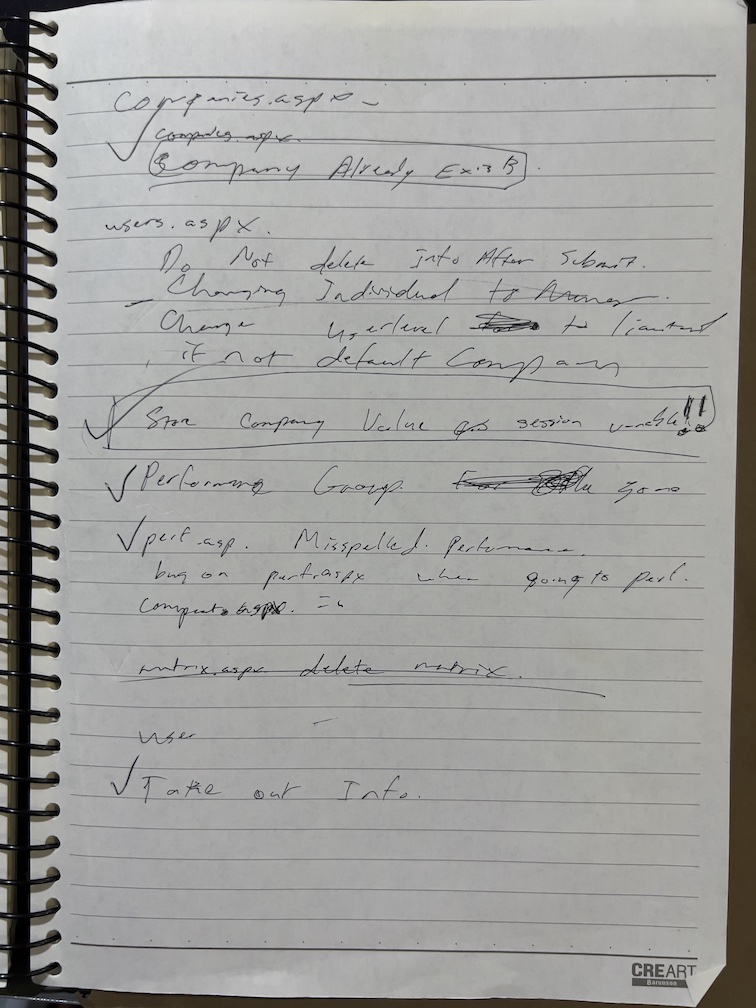 Companies.aspx -
companies.aspx.
Company Already Exists.
users.aspx.
Do Not delete Info After Submit.
Changing Individual to
Change userlevel to
if not default Company
Store Company Value as session variable!!
Performing Group.
perf.asp. Misspelled. Performance.
bug on perf.aspx when going to perf.
matrix.aspx delete matrix.
user
Take out Info.
CREART